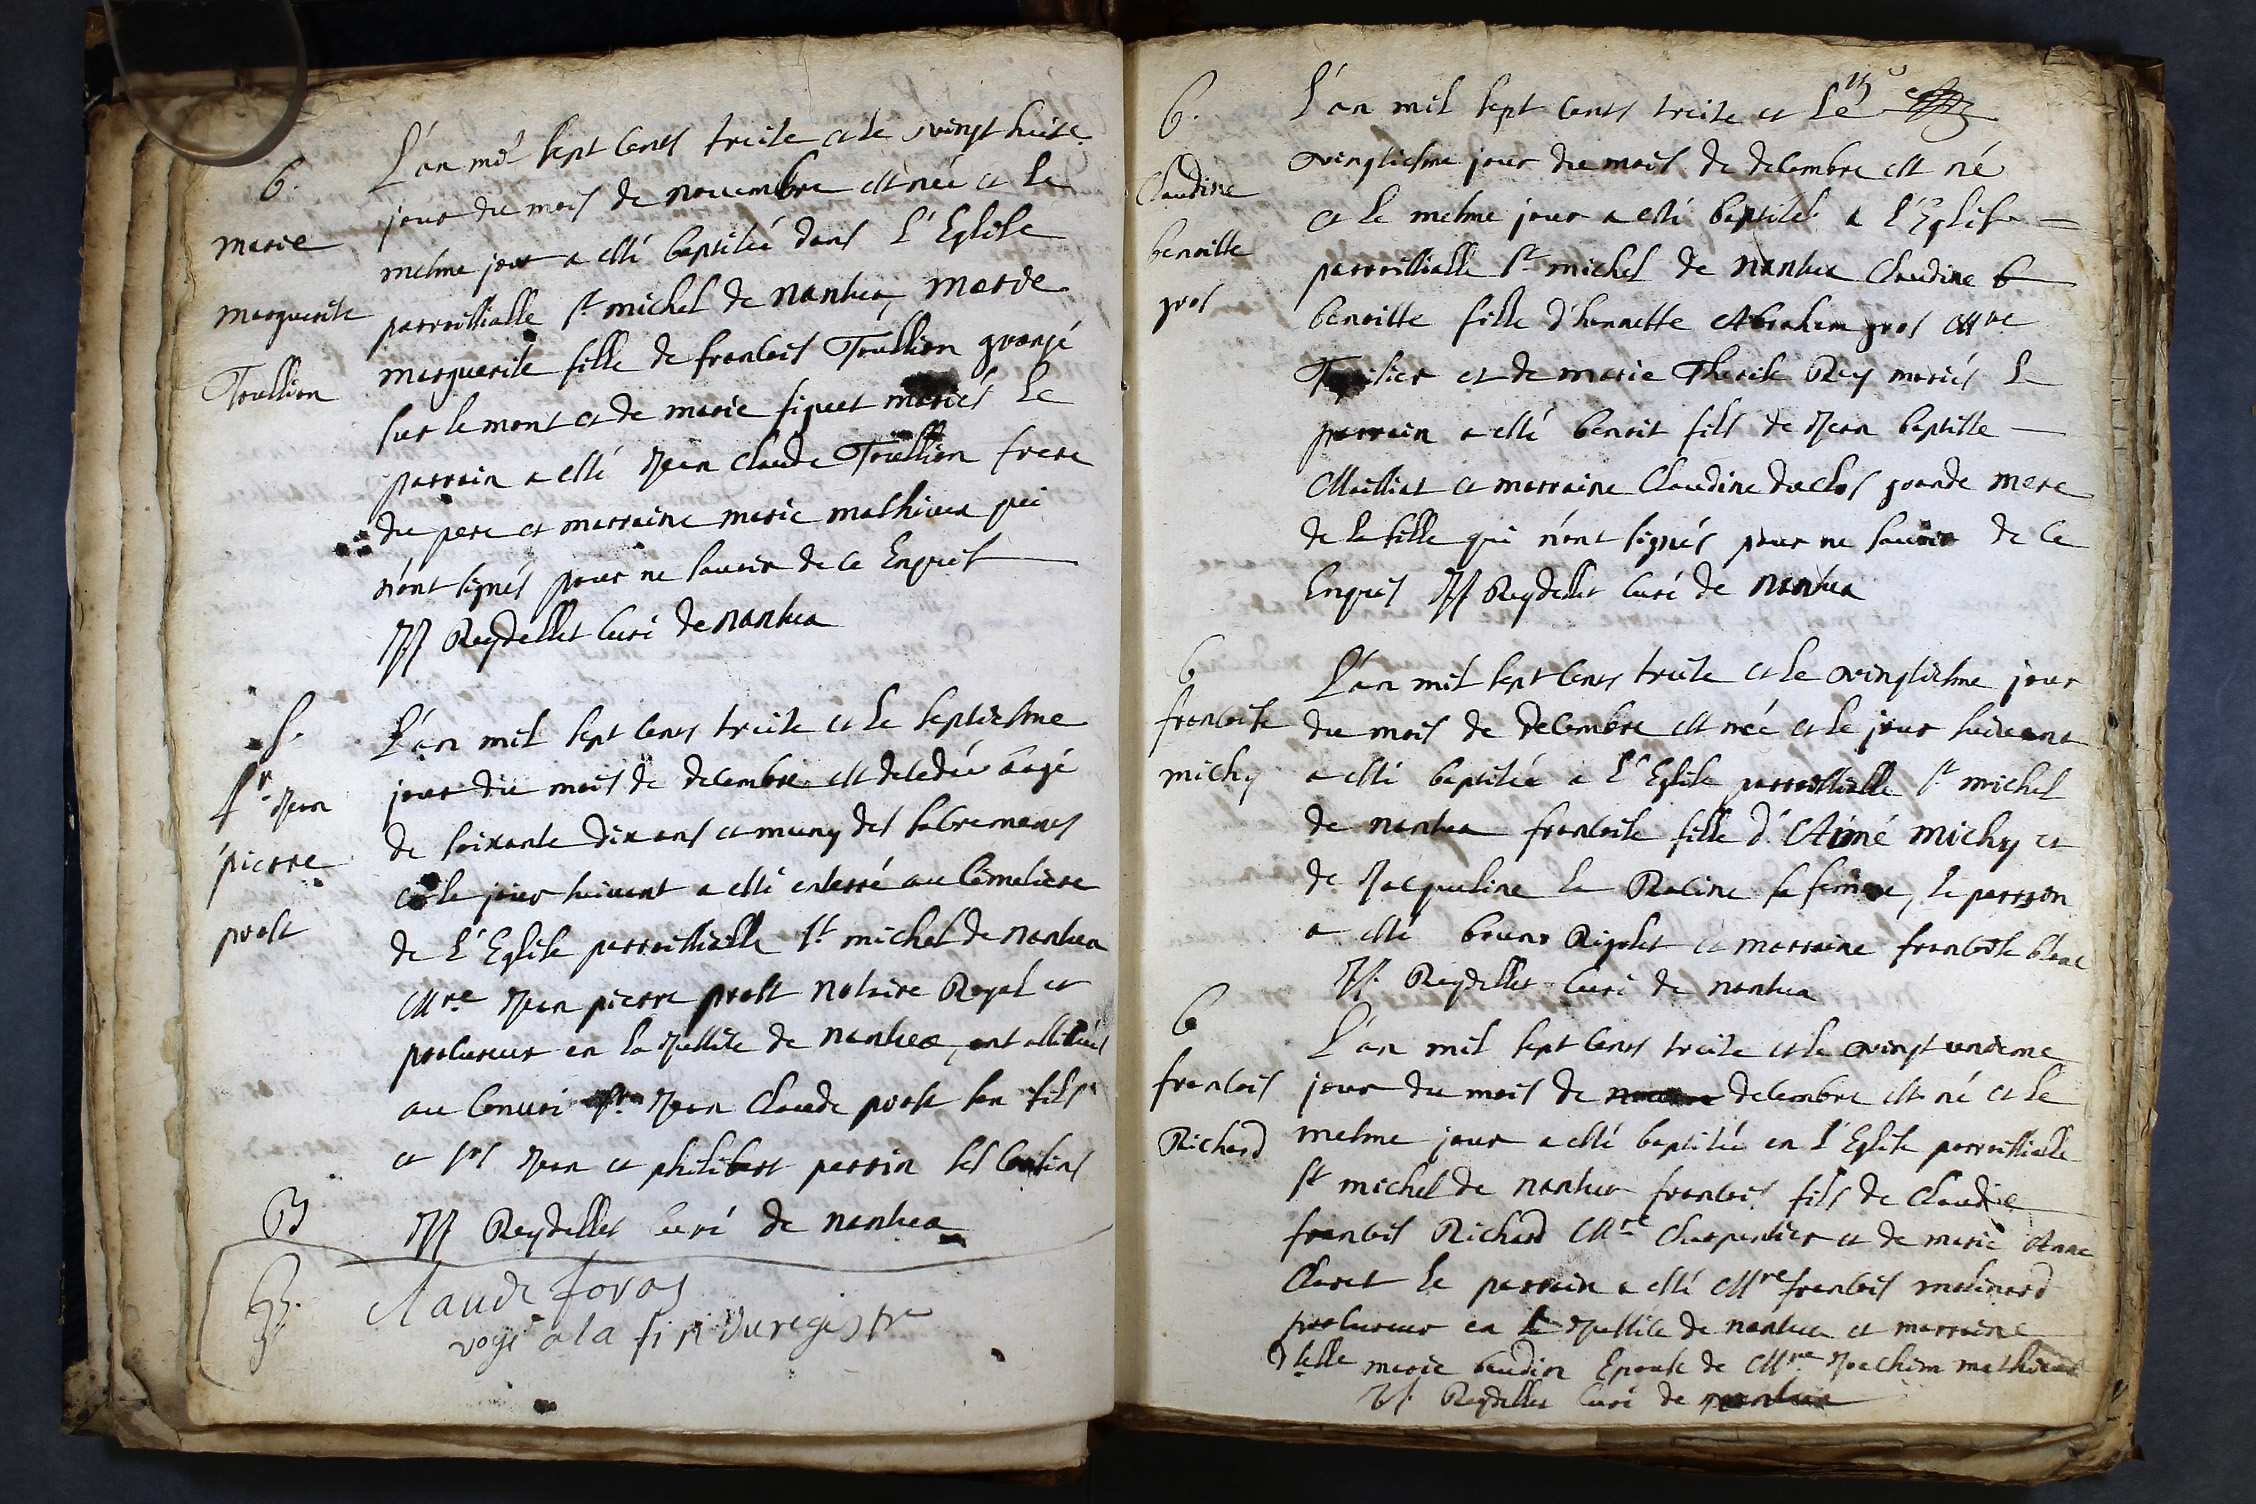 b.
marie
marguerite
Toullion
L'an mil sept cents treize et le vingt huite
jour du mois de novembre est née et le
mesme jour a esté baptisée dans L'Eglise
parroissialle st michel de nantua, marie
marguerite fille de francois Toullion grangé
sur le mont et de marie figuet mariés le
parrain a esté Jean claude Toullion frere
du pere et marraine marie mathieu qui
n'ont signés pour ne savoir de ce Enquis
JJ Reydellet curé de nantua
s.
sr. Jean
pierre
prost
L'an mil sept cents treize et le septiesme
jour du mois de decembre est decedée aagé
de soixante dix ans et muny des sacremens
et le jour suivant a esté enterré au cimetiere
de L'Eglise parroissialle st. michel de nantua
Mre. Jean pierre prost notaire Royal et
procureur en la justice de nantua, ont assistés
au convoi sr. Jean Claude prost son fils
et srs Jean et philibert perrin ses cousins
JJ Reydellet curé de nantua
B
B.
claude foras
voyé a la fin du registre
b.
Claudine
benoitte
gros
L'an mil sept cents treize et le
vingtiesme jour du mois de decembre est né
et le mesme jour a esté baptisé a l'Eglise
parroissialle st michel de nantua Claudine b
benoitte fille d'honneste Abraham gros Mre
et de marie Therese Rey mariés le
parrain a esté benoit fils de Jean baptiste
Mailliat et marraine Claudine duclos grande mere
de la fille qui n'ont signés pour ne savoir de ce
Enquis JJ Reydellet curé de nantua
b
francoise
michy
L'an mil sept cents treize et le vingtiesme jour
du mois de decembre est née et le jour suivant
a esté baptisée a L'Eglise parroissialle st michel
de nantua francoise fille d'Aimé michy et
de Jacqueline la Racine sa femme, le parrain
a esté bruno Rigolet et marraine francoise blanc
JJ. Reydellet curé de nantua
b
francois
Richard
L'an mil sept cents treize et le vingt unieme
jour du mois de decembre est né et le
mesme jour a esté baptisée en L'Eglise parroissialle
st michel de nantua francois fils de Claude
francois Richard Mre Charpentier et de marie Anne
Claret le parrain a esté Mre francois molinard
procureur en la justice de nantua et marraine
dlle marie baudin Epouse de Mre. Joachim mathieu
JJ. Reydellet curé de nantua